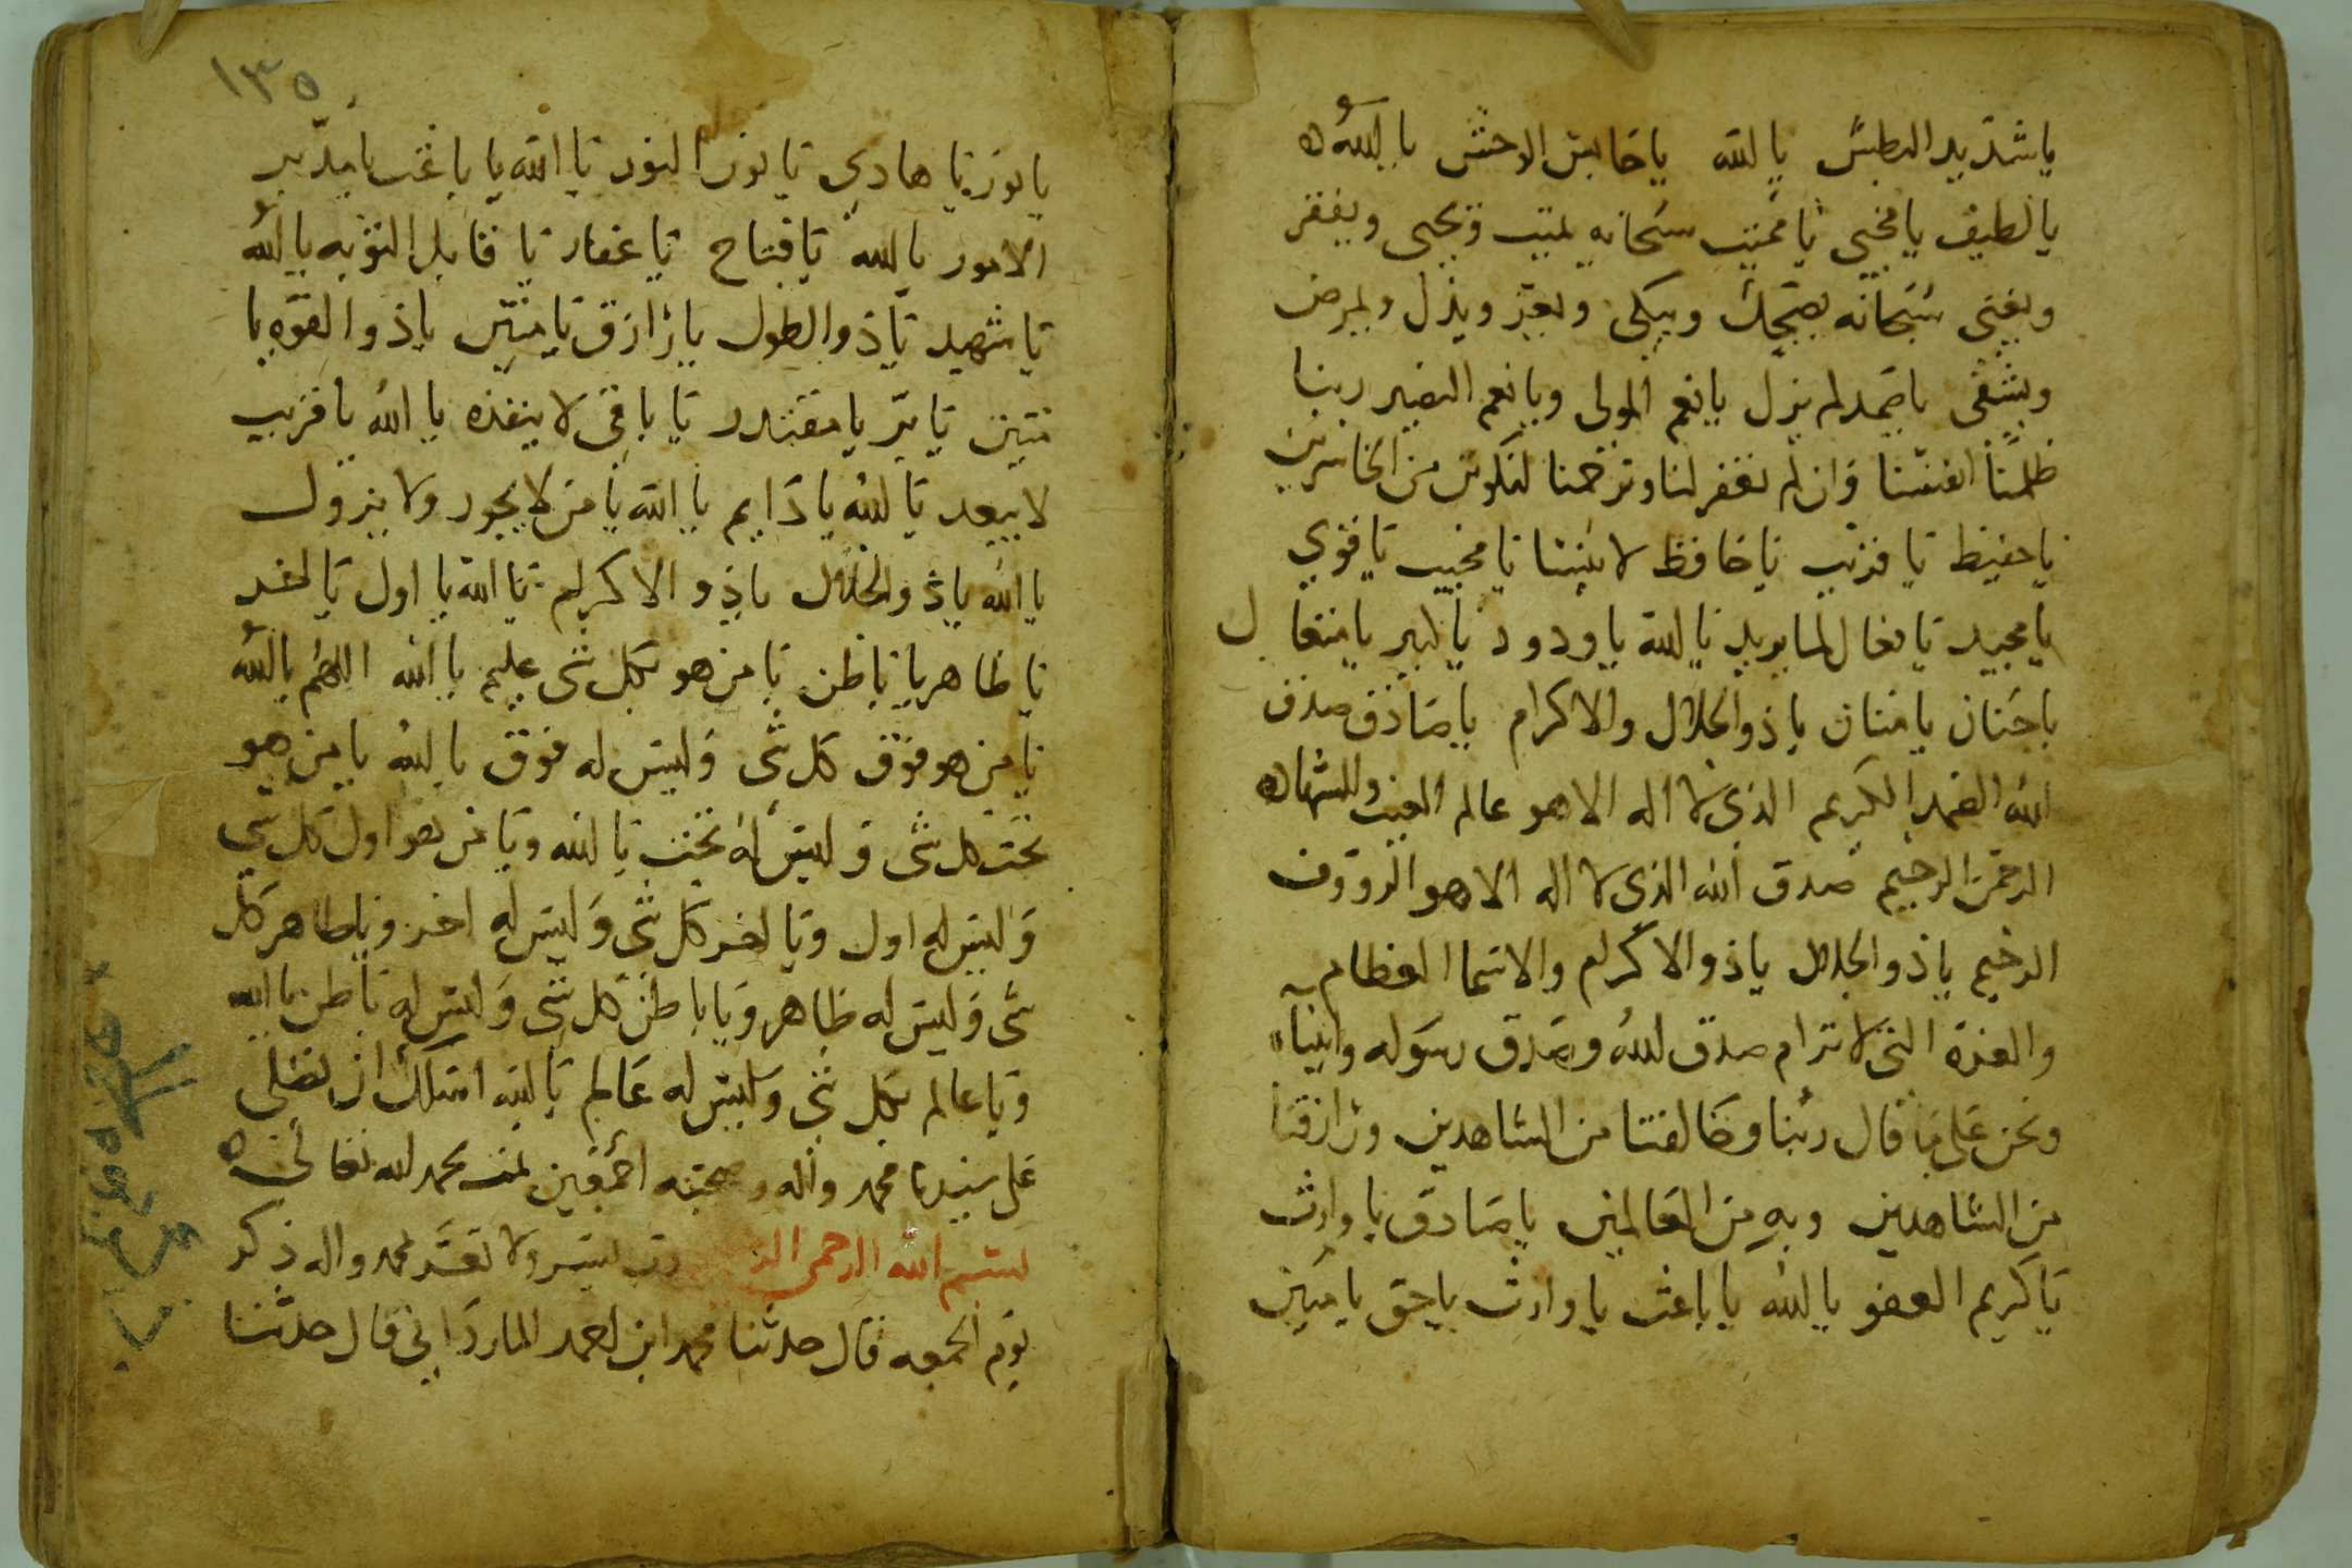 يا شديد البطش يا الله يا حابس الوحش يا الله ه
يا لطيف يا محيي يا مميت سبحانه يميت ويحيي ويفقر
ويغني سبحانه يضحك ويبكي ويعز ويذل ويمرض
ويشفي يا صمد لم يزل يا نعم المولى ويا نعم النصير ربنا
ظلمنا انفسنا وان لم تغفر لنا وترحمنا لنكونن من الخاسرين
يا حفيظ يا قريب يا حافظ لا ينسا يا مجيب يا قوي
يا مجيد يا فعال لما يريد يا الله يا ودود يا كبير يا متعال
يا حنان يا منان يا ذو الجلال والاكرام يا صادق صدق
الله الصمد الكريم الذي لا اله الا هو عالم الغيب والشهاده
الرحمن الرحيم صدق الله الذي لا اله الا هو الرووف
الرحيم يا ذو الجلال يا ذو الاكرام والاسما العظام
والعزة التي لا ترام صدق الله وصدق رسوله وانبياه
ونحن على ما قال ربنا وخالقنا من الشاهدين ورازقنا
من الشاهدين وبه من العالمين يا صادق يا وارث
يا كريم العفو يا الله يا باعث يا وارث يا حق يا مبين
١٣٥
يا نور يا هادي يا نور النور يا الله يا باعث يا مدبر
الامور يا الله يا فتاح يا غفار يا قابل التوبه يا الله
يا شهيد يا ذو الطول يا رازق يا متين يا ذو القوه يا
متين يا بر يا مقتدر يا باقي لا ينفذه يا الله يا قريب
لا يبعد يا الله يا دايم يا الله يا من لا يجور ولا يزول
يا الله يا ذو الجلال يا ذو الاكرام يا الله يا اول يا اخر
يا ظاهر يا باطن يا من هو بكل شي عليم يا الله اللهم يا الله
يا من هو فوق كل شي وليس له فوق يا الله يا من هو
تحت كل شي وليس له تحت يا الله ويا من هو اول كل شي
وليس له اول ويا اخر كل شي وليس له اخر ويا ظاهر كل
شي وليس له ظاهر ويا باطن كل شي وليس له باطن يا الله
ويا عالم بكل شي وليس له عالم يا الله اسالك ان تصلي
على سيدنا محمد واله وصحبه اجمعين تمت بحمد الله تعالى ه
بسم الله الرحمن الر رب يسر ولا تعسر محمد واله ذكر
يوم الجمعه قال حدثنا محمد ابن احمد الماردابي قال حدثنا